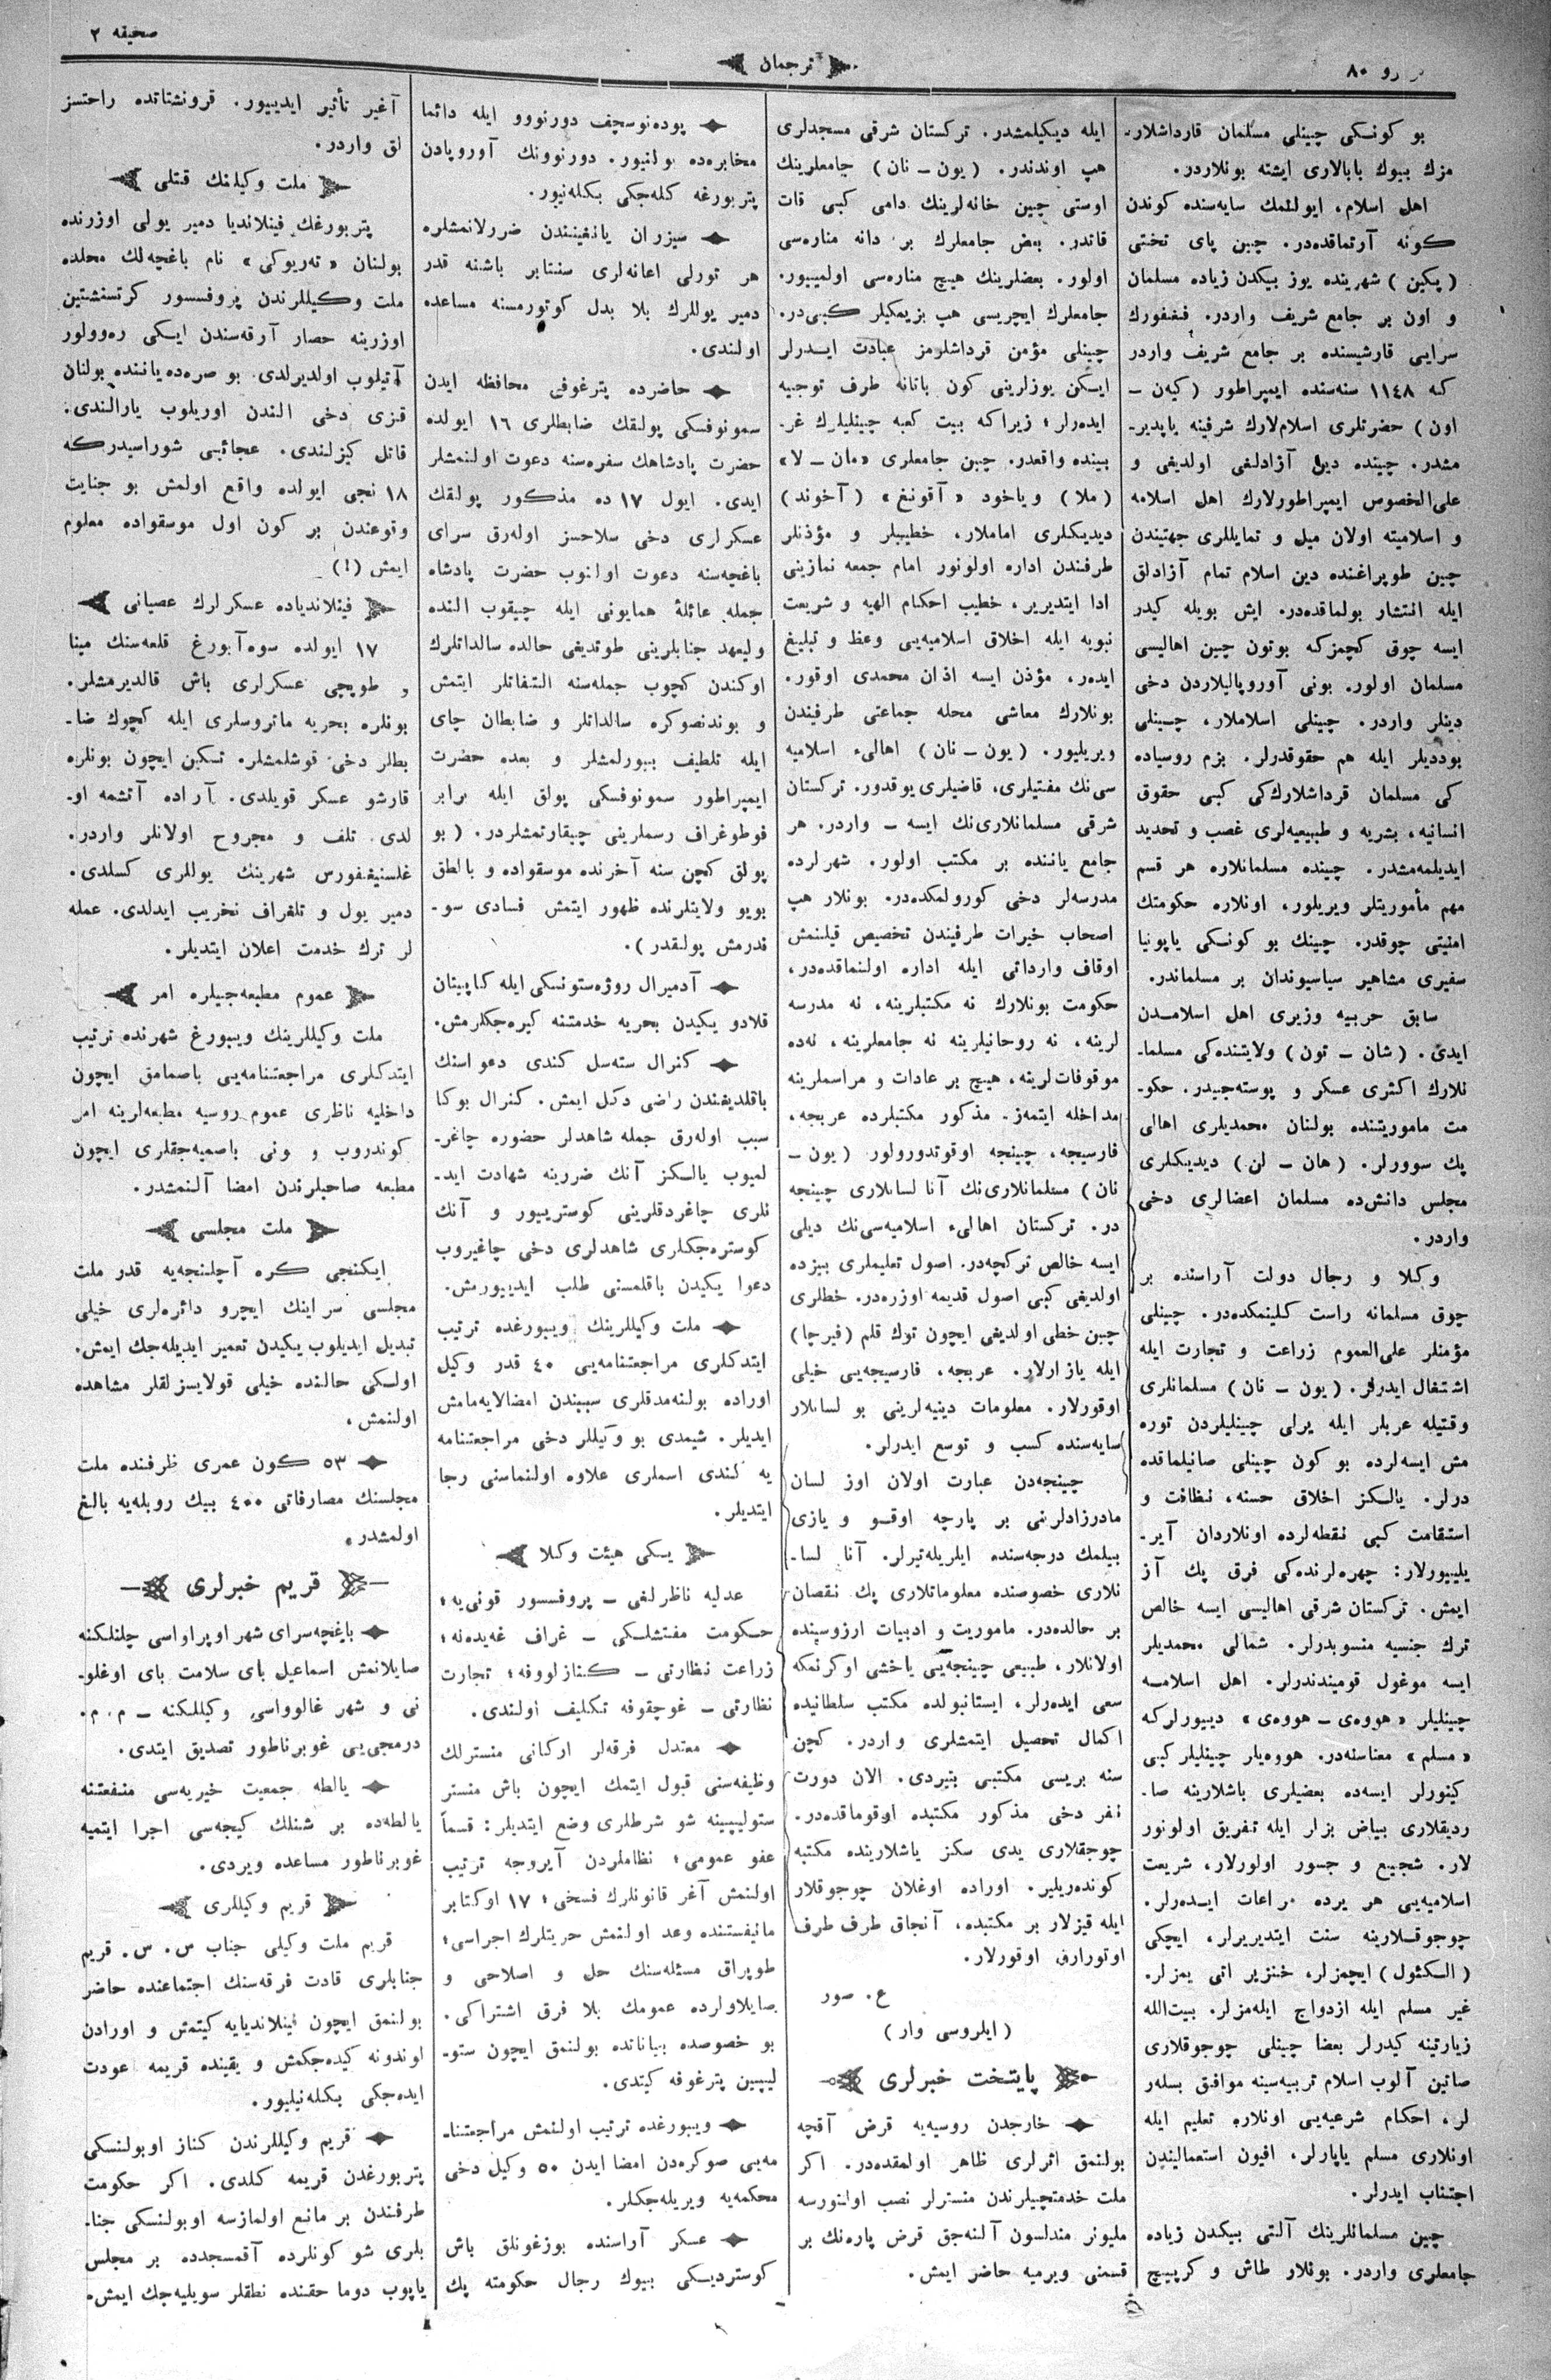 نومرو ٨٠
ترجمان
صحیفه ٢
بو کونسکی چینلی مسلمان قارداشلار۔
مزك بیوك بابالاری ایشته بونلاردر.
اهل اسلام، ایولئمك سایه‌سنده کوندن
کونه آرتماقده‌در. چین پای تختی
(پکین) شهرینده یوز بیکدن زیاده مسلمان
و اون بر جامع شریف واردر. فغفورك
سرایی قارشیسنده بر جامع شریف واردر
که ١١٤٨ سنه‌سنده ایمپراطور (کیه‌ن ـ
اون) حضرتلری اسلام‌لارك شرفینه یاپدیر۔
مشدر. چینده دین آزادلغی اولدیغی و
علی‌الخصوص ایمپراطورلارك اهل اسلامه
و اسلامیته اولان میل و تمایللری جهتیندن
چین طوپراغنده دین اسلام تمام آزادلق
ایله انتشار بولماقده‌در. ایش بویله کیدر
ایسه چوق کچمزکه بوتون چین اهالیسی
مسلمان اولور. بونی آوروپالیلاردن دخی
دینلر واردر. چینلی اسلاملار، چینلی
بوددیلر ایله هم حقوقدرلر. بزم روسیاده
کی مسلمان قرداشلارك‌کی کبی حقوق
انسانیه، بشریه و طبیعیه‌لری غصب و تحدید
ایدیلمه‌مشدر. چینده مسلمانلاره هر قسم
مهم مأموریتلر ویریلور، اونلاره حکومتك
امنیتی چوقدر. چینك بو کونسکی یاپونیا
سفیری مشاهیر سیاسیوندان بر مسلماندر.
سابق حربیه وزیری اهل اسلامدن
ایدی. (شان ـ تون) ولایتنده‌کی مسلما۔
نلارك اکثری عسکر و پوسته‌جیدر. حکو۔
مت ماموریتنده بولنان محمدیلری اهالی
پك سوورلر. (هان ـ لن) دیدیکلری
مجلس دانش‌ده مسلمان اعضالری دخی
واردر.
وکلا و رجال دولت آراسنده بر
چوق مسلمانه راست کلینمکده‌در. چینلی
مؤمنلر علی‌العموم زراعت و تجارت ایله
اشتغال ایدرلر. (یون ـ نان) مسلمانلری
وقتیله عربلر ایله یرلی چینلیلردن توره
مش ایسه‌لرده بو کون چینلی صانیلماقده
درلر. یالکز اخلاق حسنه، نظافت و
استقامت کبی نقطه‌لرده اونلاردان آیر۔
یلیورلار: چهره‌لرنده‌کی فرق پك آز
ایمش. ترکستان شرقی اهالیسی ایسه خالص
ترك جنسیه منسوبدرلر. شمالی محمدیلر
ایسه موغول قومیندندرلر. اهل اسلامه
چینلیلر «هووه‌ی ـ هووه‌ی» دییورلرکه
«مسلم» معناسنه‌در. هووه‌یلر چینلیلر کبی
کینورلر ایسه‌ده بعضیلری باشلارینه صا۔
ردیقلاری بیاض بزلر ایله تفریق اولونور
لار. شجیع و جسور اولورلار، شریعت
اسلامیه‌یی هر یرده مراعات ایده‌رلر.
چوجوقلارینه سنت ایتدیریرلر، ایچکی
(الکئول) ایچمزلر، خنزیر اتی یمزلر.
غیر مسلم ایله ازدواج ایله‌مزلر. بیت‌الله
زیارتینه کیدرلر بعضا چینلی چوجوقلاری
صاتین آلوب اسلام تربیه‌سینه موافق بسله‌ر
لر، احکام شرعیه‌یی اونلاره تعلیم ایله
اونلاری مسلم یاپارلر، افیون استعمالیندن
اجتناب ایدرلر.
چین مسلمانلرینك آلتی بیکدن زیاده
جامعلری واردر. بونلار طاش و کرپیچ
ایله دیکیلمشدر. ترکستان شرقی مسجدلری
هپ اوندندر. (یون ـ نان) جامعلرینك
اوستی چین خانه‌لرینك دامی کبی قات
قاتدر. بعض جامعلرك بر دانه مناره‌سی
اولور. بعضلرینك هیچ مناره‌سی اولمییور.
جامعلرك ایچریسی هپ بزیمکیلر کبی‌در.
چینلی مؤمن قرداشلرمز عبادت ایدرلر
ایکن یوزلرینی کون باتانه طرف توجیه
ایده‌رلر؛ زیراکه بیت کعبه چینلیلرك غر۔
بینده واقعدر. چین جامعلری «مان ـ لا»
(ملا) ویاخود «آقونغ» (آخوند)
دیدیکلری اماملار، خطیبلر و مؤذنلر
طرفندن اداره اولونور امام جمعه نمازینی
ادا ایتدیریر، خطیب احکام الهیه و شریعت
نبویه ایله اخلاق اسلامیه‌یی وعظ و تبلیغ
ایده‌ر، مؤذن ایسه اذان محمدی اوقور.
بونلارك معاشی محله جماعتی طرفیندن
ویریلیور. (یون ـ نان) اهالیء اسلامیه
سی‌نك مفتیلری، قاضیلری یوقدور. ترکستان
شرقی مسلمانلاری‌نك ایسه ـ واردر. هر
جامع یاننده بر مکتب اولور. شهرلرده
مدرسه‌لر دخی کورولمکده‌در. بونلار هپ
اصحاب خیرات طرفیندن تخصیص قیلنمش
اوقاف وارداتی ایله اداره اولنماقده‌در،
حکومت بونلارك نه مکتبلرینه، نه مدرسه
لرینه، نه روحانیلرینه نه جامعلرینه، نه‌ده
موقوفات‌لرینه، هیچ بر عادات و مراسملرینه
مداخله ایتمه‌ز. مذکور مکتبلرده عربجه،
فارسیجه، چینجه اوقوتدورولور (یون ـ
نان) مسلمانلاری‌نك آنا لسانلاری چینجه
در. ترکستان اهالیء اسلامیه‌سی‌نك دیلی
ایسه خالص ترکچه‌در. اصول تعلیملری بیزده
اولدیغی کبی اصول قدیمه اوزره‌در. خطلری
چین خطی اولدیغی ایچون توك قلم (فیرچا)
ایله یازارلار. عربجه، فارسیجه‌یی خیلی
اوقورلار. معلومات دینیه‌لرینی بو لسانلار
سایه‌سنده کسب و توسع ایدرلر.
چینجه‌دن عبارت اولان اوز لسان
مادرزادلرنی بر پارچه اوقو و یازی
بیلمك درجه‌سنده ایلریله‌تیرلر. آنا لسا۔
نلاری خصوصنده معلوماتلاری پك نقصان
بر حالده‌در. ماموریت و ادبیات ارزوسینده
اولانلار، طبیعی چینجه‌یی یاخشی اوکرنمکه
سعی ایده‌رلر، ایستانبولده مکتب سلطانیده
اکمال تحصیل ایتمشلری واردر. کچن
سنه بریسی مکتبی بتیردی. الان دورت
نفر دخی مذکور مکتبده اوقوماقده‌در.
چوجقلاری یدی سکز یاشلارینده مکتبه
کونده‌ریلیر. اوراده اوغلان چوجوقلار
ایله قیزلار بر مکتبده، آنجاق طرف طرف
اوتورارق اوقورلار.
ع. صور
(ایلروسی وار)
پایتخت خبرلری
خارجدن روسیه‌یه قرض آقچه
بولنمق اثرلری ظاهر اولمقده‌در. اکر
ملت خدمتچیلرندن منسترلر نصب اولنورسه
ملیونر مندلسون آلنه‌جق قرض پاره‌نك بر
قسمنی ویرمیه حاضر ایمش.
پوده‌نوسچف دورنووو ایله دائما
مخابره‌ده بولنیور. دورنوونك آوروپادن
پتربورغه کله‌جکی بکله‌نیور.
سیزران یانغینندن ضررلانمشلره
هر تورلی اعانه‌لری سنتابر باشنه قدر
دمیر یوللرك بلا بدل کوتورمسنه مساعده
اولندی.
حاضرده پترغوفی محافظه ایدن
سمونوفسکی پولقك ضابطلری ١٦ ایولده
حضرت پادشاهك سفره‌سنه دعوت اولنمشلر
ایدی. ایول ١٧ ده مذکور پولقك
عسکرلری دخی سلاحسز اوله‌رق سرای
باغچه‌سنه دعوت اولنوب حضرت پادشاه
جمله عائلهٔ همایونی ایله چیقوب النده
ولیعهد جنابلرینی طوتدیغی حالده سالداتلرك
اوکندن کچوب جمله‌سنه التفاتلر ایتمش
و بوندنصوکره سالداتلر و ضابطان چای
ایله تلطیف بیورلمشلر و بعده حضرت
ایمپراطور سمونوفسکی پولق ایله برابر
فوطوغراف رسملرینی چیقارتمشلردر. (بو
پولق کچن سنه آخرنده موسقواده و بالطق
بویو ولایتلرنده ظهور ایتمش فسادی سو۔
ندرمش پولقدر).
آدمیرال روژه‌ستونسکی ایله کاپیتان
قلادو یکیدن بحریه خدمتنه کیره‌جکلرمش.
کنرال سته‌سل کندی دعواسنك
باقلدیغندن راضی دکل ایمش. کنرال بوکا
سبب اوله‌رق جمله شاهدلر حضوره چاغر۔
لمیوب یالکز آنك ضررینه شهادت اید۔
نلری چاغردقلرینی کوستریبور و آنك
کوستره‌جکلری شاهدلری دخی چاغیروب
دعوا یکیدن باقلمسنی طلب ایدییورمش.
ملت وکیللرینك ویبورغده ترتیب
ایتدکلری مراجعتنامه‌یی ٤٠ قدر وکیل
اوراده بولنه‌مدقلری سببندن امضالایه‌مامش
ایدیلر. شیمدی بو وکیللر دخی مراجعتنامه
یه کندی اسملری علاوه اولنماسنی رجا
ایتدیلر.
یکی هیئت وکلا
عدلیه ناظرلغی ـ پروفسسور قونی‌یه؛
حکومت مفتشلکی ـ غراف غه‌یده‌نه؛
زراعت نظارتی ـ کنازلووفه؛ تجارت
نظارتی ـ غوچقوفه تکلیف اولندی.
معتدل فرقه‌لر ارکانی منسترلك
وظیفه‌سنی قبول ایتمك ایچون باش منستر
ستولیپینه شو شرطلری وضع ایتدیلر: قسماً
عفو عمومی؛ نظاملردن آیروجه ترتیب
اولنمش آغر قانونلرك فسخی؛ ١٧ اوکتابر
مانیفستنده وعد اولنمش حریتلرك اجراسی؛
طوپراق مسئله‌سنك حل و اصلاحی و
صایلاولرده عمومك بلا فرق اشتراکی.
بو خصوصده بیاناتده بولنمق ایچون ستو۔
لیپین پترغوفه کیتدی.
ویبورغده ترتیب اولنمش مراجعتنا۔
مه‌یی صوکره‌دن امضا ایدن ٥٠ وکیل دخی
محکمه‌یه ویریله‌جکلر.
عسکر آراسنده بوزغونلق باش
کوستردیکی بیوك رجال حکومته پك
آغیر تأثیر ایدییور. قرونشتاتده راحتسز
لق واردر.
ملت وکیلنك قتلی
پتربورغك فینلاندیا دمیر یولی اوزرنده
بولنان «ته‌ریوکی» نام باغچه‌لك محلده
ملت وکیللرندن پروفسسور کرتسنشتین
اوزرینه حصار آرقه‌سندن ایکی ره‌وولور
آتیلوب اولدیرلدی. بو صره‌ده یاننده بولنان
قزی دخی الندن اوریلوب یارالندی.
قاتل کیزلندی. عجائبی شوراسیدرکه
١٨ نجی ایولده واقع اولمش بو جنایت
وقوعندن بر کون اول موسقواده معلوم
ایمش (!)
فینلاندیاده عسکرلرك عصیانی
١٧ ایولده سوه‌آبورغ قلعه‌سنك مینا
و طوپچی عسکرلری باش قالدیرمشلر.
بونلره بحریه ماتروسلری ایله کچوك ضا۔
بطلر دخی قوشلمشلر. تسکین ایچون بونلره
قارشو عسکر قویلدی. آراده آتشمه او۔
لدی. تلف و مجروح اولانلر واردر.
غلسنیغفورس شهرینك یوللری کسلدی.
دمیر یول و تلغراف تخریب ایدلدی. عمله
لر ترك خدمت اعلان ایتدیلر.
عموم مطبعه‌جیلره امر
ملت وکیللرینك ویبورغ شهرنده ترتیب
ایتدکلری مراجعتنامه‌یی باصمامق ایچون
داخلیه ناظری عموم روسیه مطبعه‌لرینه امر
کوندروب و ونی باصمیه‌جقلری ایچون
مطبعه صاحبلرندن امضا آلنمشدر.
ملت مجلسی
ایکنجی کره آچلنجه‌یه قدر ملت
مجلسی سراینك ایچرو دائره‌لری خیلی
تبدیل ایدیلوب یکیدن تعمیر ایدیله‌جك ایمش.
اولکی حالنده خیلی قولایسزلقلر مشاهده
اولنمش.
٥٣ کون عمری ظرفنده ملت
مجلسنك مصارفاتی ٤٠٠ بیك روبله‌یه بالغ
اولمشدر.
قریم خبرلری
باغچه‌سرای شهر اوپراواسی چلنلکنه
صایلانمش اسماعیل بای سلامت بای اوغلو۔
نی و شهر غالوواسی وکیللکنه ـ م. م.
درمجی‌یی غوبرناطور تصدیق ایتدی.
یالطه جمعیت خیریه‌سی منفعتنه
یالطه‌ده بر شنلك کیجه‌سی اجرا ایتمیه
غوبرناطور مساعده ویردی.
قریم وکیللری
قریم ملت وکیلی جناب س. س. قریم
جنابلری قادت فرقه‌سنك اجتماعنده حاضر
بولنمق ایچون فینلاندیایه کیتمش و اورادن
لوندونه کیده‌جکمش و یقینده قریمه عودت
ایده‌جکی بکله‌نیلیور.
قریم وکیللرندن کناز اوبولنسکی
پتربورغدن قریمه کلدی. اکر حکومت
طرفندن بر مانع اولمازسه اوبولنسکی جنا۔
بلری شو کونلرده آقمسجدده بر مجلس
یاپوب دوما حقنده نطقلر سویلیه‌جك ایمش.